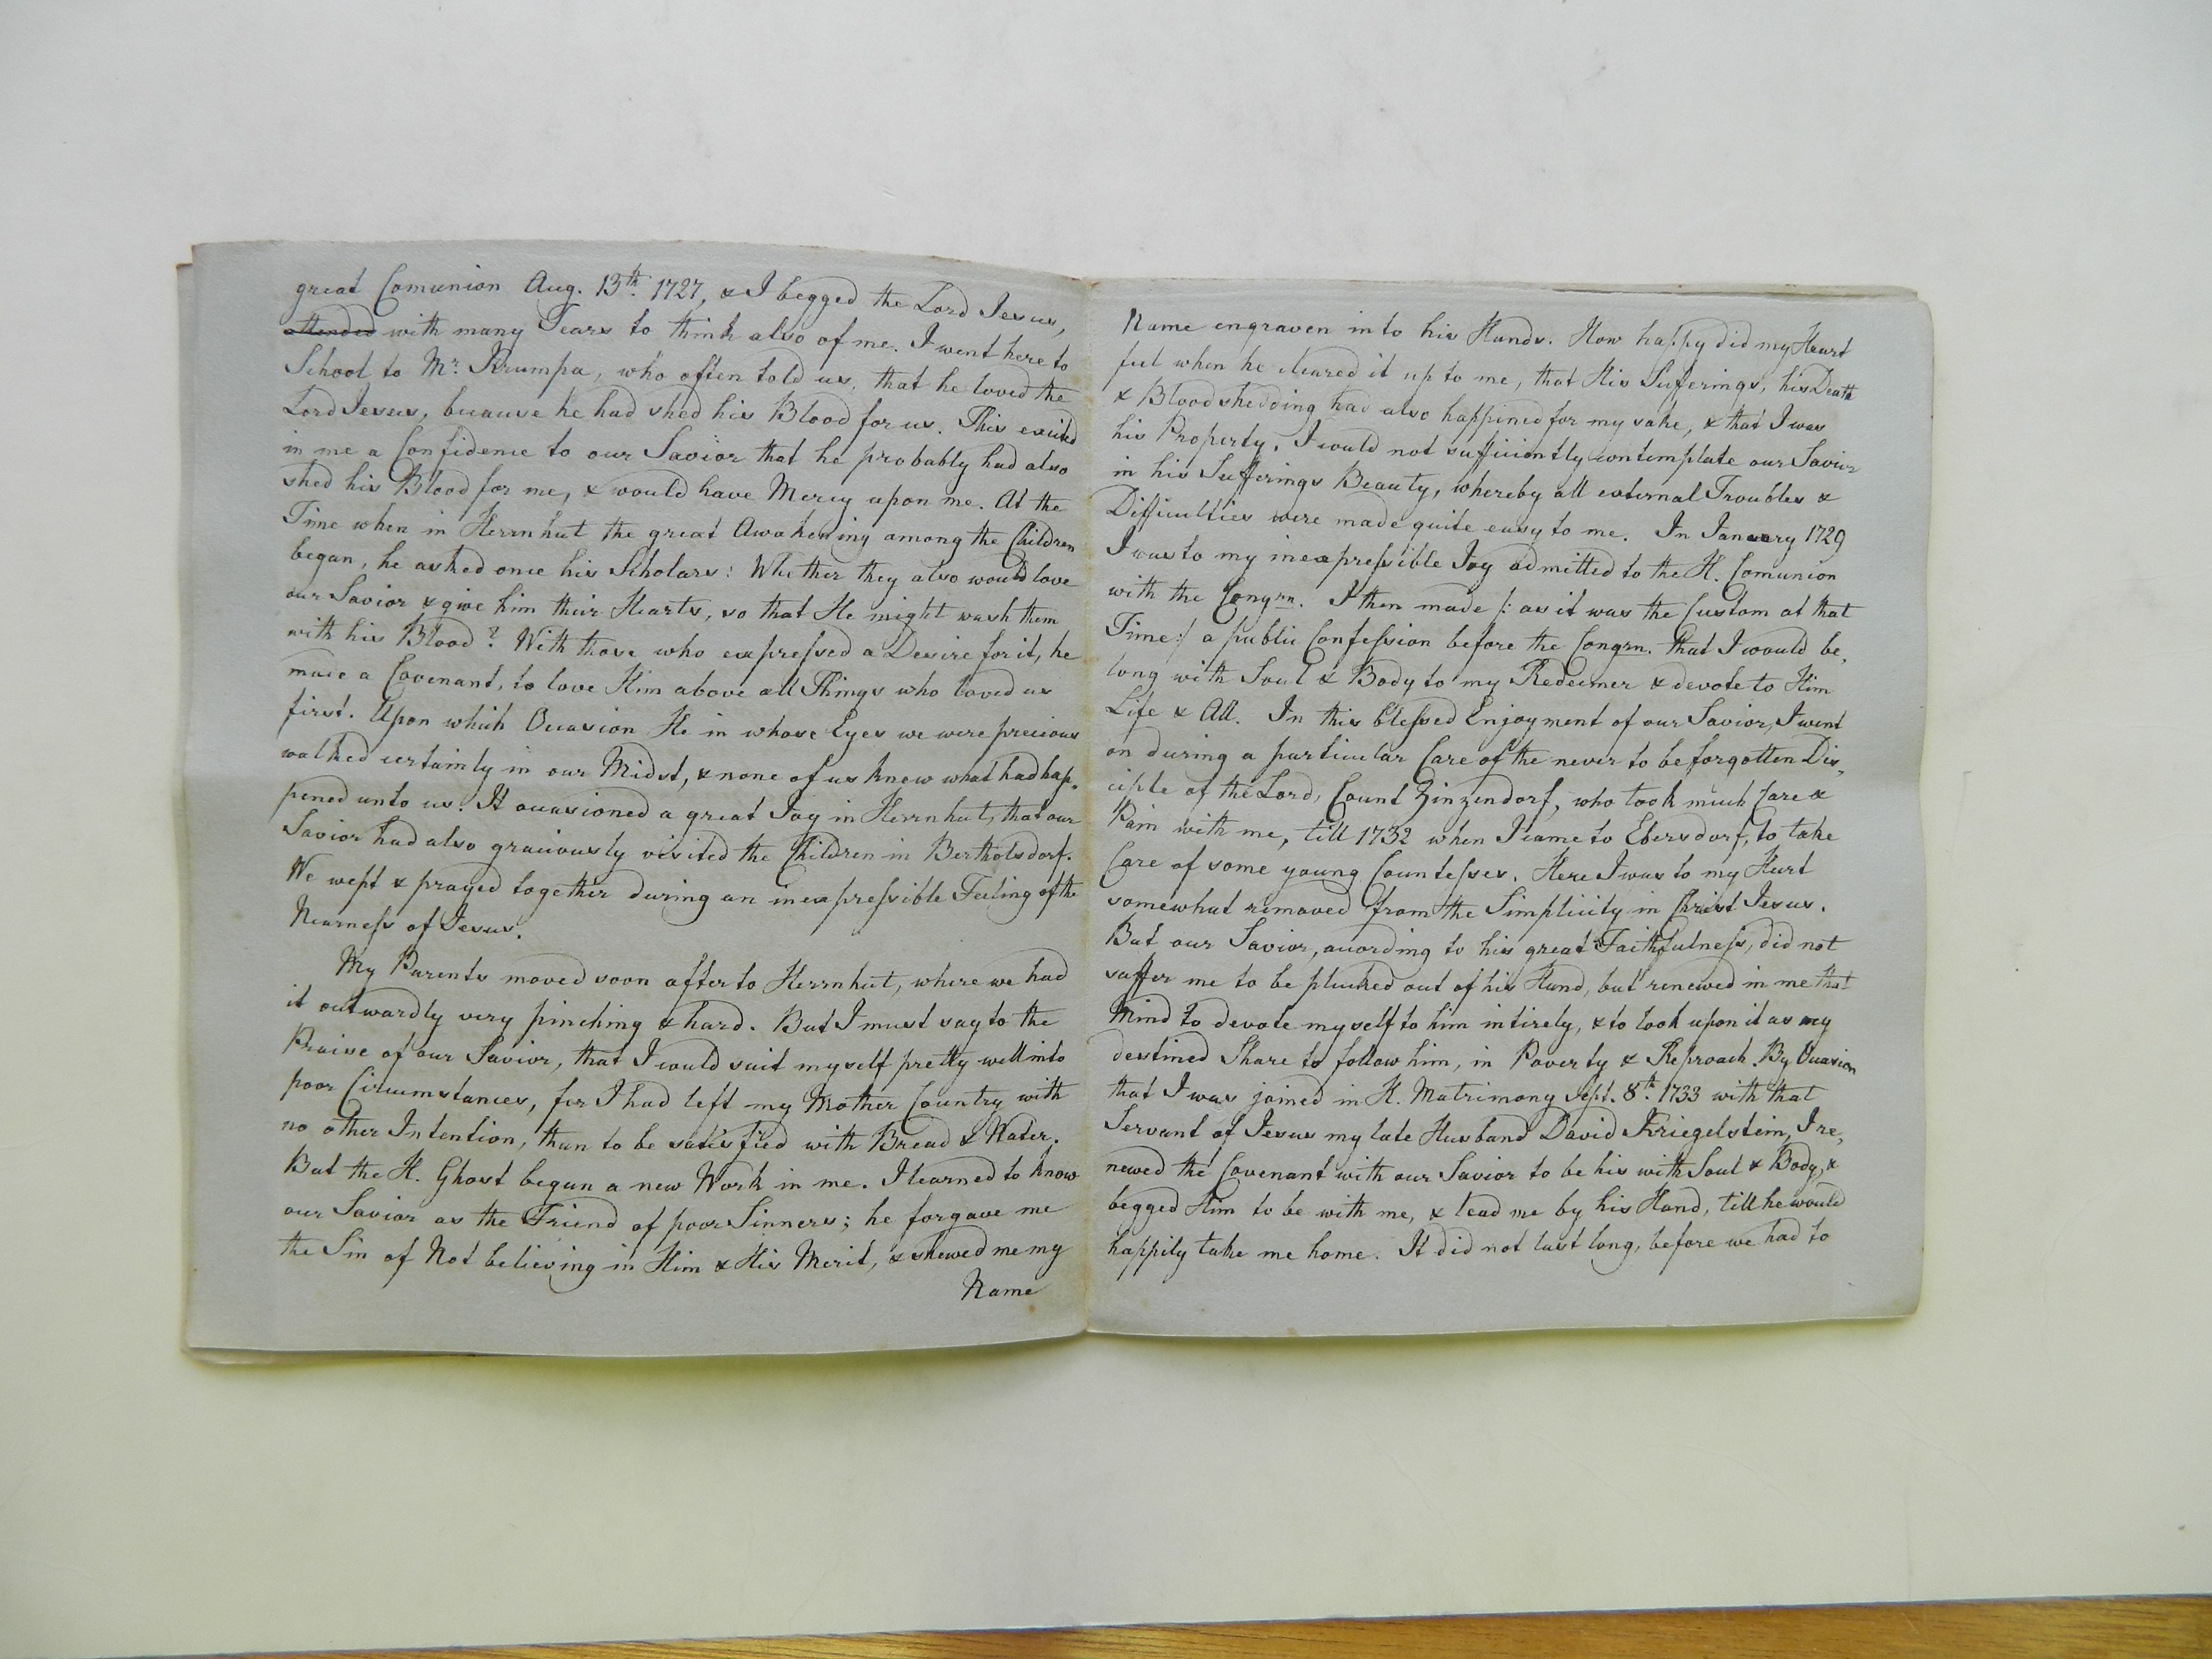 great Comunion Aug. 13th. 1727, & I begged the Lord Jesus,
attended with many Tears to think also of me. I went here to
School to Mr. Krumpa, who often told us, that he loved the
Lord Jesus, because he had shed his Blood for us. This excited
in me a Confidence to our Savior that he probably had also
shed his Blood for me, & would have Mercy upon me. At the
Time when in Herrnhut the great Awakening among the Children
began, he asked once his Scholars: Whether they also would love
our Savior & give him their Hearts, so that He might wash them
with his Blood? With those who expressed a Desire for it, he
made a Covenant, to love Him above all Things who loved us
first. Upon which Occasion He in whose Eyes we were precious
walked certainly in our Midst, & none of us knew what had hap,
pened unto us. It occasioned a great Joy in Herrnhut, that our
Savior had also graciously visited the Children in Bertholsdorf.
We wept & prayed together during an inexpressible Feeling of the
Nearness of Jesus.
My Parents moved soon after to Herrnhut, where we had
it outwardly very pinching & hard. But I must say to the
Praise of our Savior, that I could suit myself pretty well into
poor Circumstances, for I had left my Mother Country with
no other Intention, than to be satisfied with Bread & Water.
But the H. Ghost began a new Work in me. I learned to know
our Savior as the Friend of poor Sinners; he forgave me
the Sin of Not believing in Him & His Merit, & shewed me my
Name
Name engraven into his Hands. How happy did my Heart
feel when he cleared it up to me, that His Sufferings, his Death
& Bloodshedding had also happined for my sake, & that I was
his Property. I could not sufficiently contemplate our Savior
in his Sufferings Beauty, whereby all external Troubles &
Difficulties were made quite easy to me. In January 1729
I was to my inexpressible Joy admitted to the H. Comunion
with the Congrn. I then made /: as it was the Custom at that
Time :/ a public Confession before the Congrn. that I would be,
long with Soul & Body to my Redeemer & devote to Him
Life & All. In this blessed Enjoyment of our Savior, I went
on during a particular Care of the never to be forgotten Dis,
ciple of the Lord, Count Zinzendorf, who took much Care &
Pain with me, till 1732 when I came to Ebersdorf, to take
Care of some young Countesses. Here I was to my Hurt
somewhat removed from the Simplicity in Christ Jesus.
But our Savior, acording to his great Faithfulness, did not
suffer me to be plucked out of his Hand, but renewed in me that
Mind to devote myself to him intirely, & to look upon it as my
destined Share to follow him, in Poverty & Reproach. By Occasion
that I was joined in H. Matrimony Sept. 8th. 1733 with that
Servant of Jesus my late Husband David Kriegelstein, I re,
newed the Covenant with our Savior to be his with Soul & Body, &
begged Him to be with me, & lead me by his Hand, till he would
happily take me home. It did not last long, before we had to